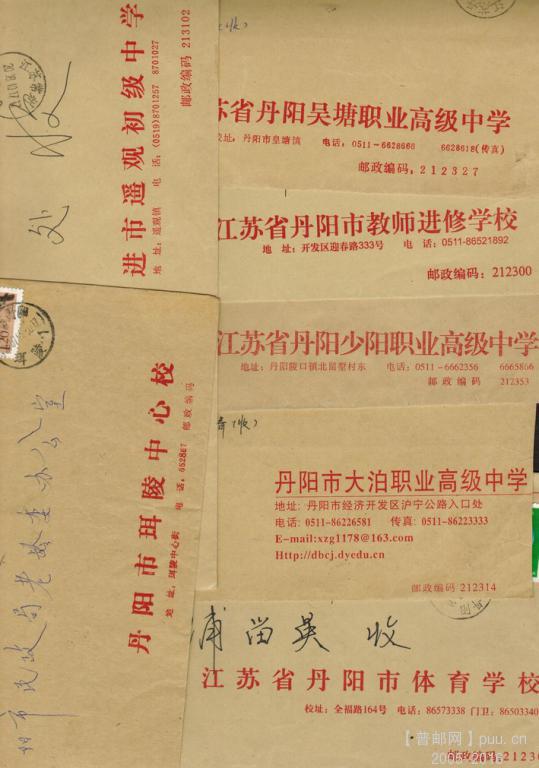 进市遥观初级中学
地址:遥观镇 电话:(0519)8701257 8701027
邮政编码 213102
处
收
苏省丹阳吴塘职业高级中学
校址:丹阳市皇塘镇 电话:0511-6628666 6628618(传真)
邮政编码:212327
江苏省丹阳市教师进修学校
地址:开发区迎春路333号 电话:0511-86521892
邮政编码:212300
江苏省丹阳少阳职业高级中学
地址:丹阳陵口镇北留墅村东 电话:0511-6662356 6665866
邮政编码 212353
(收)
丹阳市大泊职业高级中学
地址:丹阳市经济开发区沪宁公路入口处
电话:0511-86226581 传真:0511-86223333
E-mail:xzg1178@163.com
Http://dbcj.dyedu.cn
邮政编码 212314
丹阳市珥陵中心校
地址:珥陵中心街 电话:652867 邮政编码
市民政局老龄委办公室
浦留英 收
江苏省丹阳市体育学校
校址:全福路164号 电话:86573338 门卫:86503340
邮政编码:21230
【普邮网】puu.cn